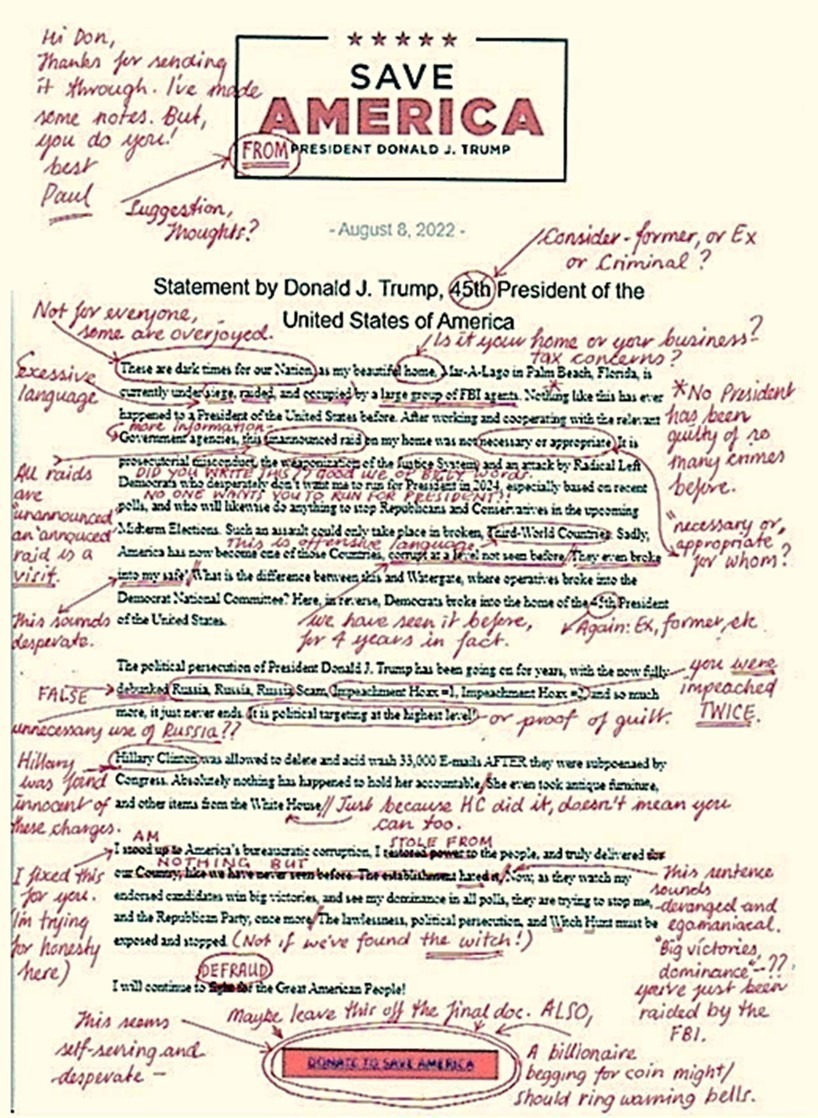 Hi Don,
Thanks for sending
it through. I've made
some notes. But,
you do you!
best
Paul
★★★★★
SAVE
AMERICA
FROM PRESIDENT DONALD J. TRUMP
Suggestion,
Thoughts?
- August 8, 2022 -
Consider - former, or Ex
or Criminal?
Statement by Donald J. Trump, 45th President of the
United States of America
Not for everyone,
some are overjoyed.
Is it your home or your business?
tax concerns?
These are dark times for our Nation, as my beautiful home, Mar-A-Lago in Palm Beach, Florida, is
Exessive
language
currently under siege, raided, and occupied by a large group of FBI agents. Nothing like this has ever
*No President
has been
guilty of so
many crimes
before.
happened to a President of the United States before. After working and cooperating with the relevant
more information-
Government agencies, this unannounced raid on my home was not necessary or appropriate. It is
prosecutorial misconduct, the weaponization of the Justice System, and an attack by Radical Left
DID YOU WRITE THIS?? good use of BIGLY words.
Democrats who desperately don't want me to run for President in 2024, especially based on recent
NO ONE WANTS YOU TO RUN FOR PRESIDENT?!
All raids
are
"unannounced"
an "annouced"
raid is a
visit.
"necessary or,
appropriate"
for whom?
polls, and who will likewise do anything to stop Republicans and Conservatives in the upcoming
Midterm Elections. Such an assault could only take place in broken, Third-World Countries. Sadly,
This is offensive language.
America has now become one of those Countries, corrupt at a level not seen before. They even broke
into my safe! What is the difference between this and Watergate, where operatives broke into the
Democrat National Committee? Here, in reverse, Democrats broke into the home of the 45th President
of the United States.
This sounds
desperate.
we have seen it before,
for 4 years in fact.
Again: Ex, former, etc
The political persecution of President Donald J. Trump has been going on for years, with the now fully
you were
impeached
TWICE.
FALSE
debunked Russia, Russia, Russia Scam, Impeachment Hoax #1, Impeachment Hoax #2, and so much
more, it just never ends. It is political targeting at the highest level!
- or proof of guilt.
unnecessary use of Russia??
Hillary
was found
innocent of
these charges.
Hillary Clinton was allowed to delete and acid wash 33,000 E-mails AFTER they were subpoenaed by
Congress. Absolutely nothing has happened to hold her accountable. She even took antique furniture,
and other items from the White House.
Just because HC did it, doesn't mean you
can too.
AM
STOLE FROM
I stood up to America's bureaucratic corruption, I restored power to the people, and truly delivered for
NOTHING BUT
our Country, like we have never seen before. The establishment hated it. Now, as they watch my
endorsed candidates win big victories, and see my dominance in all polls, they are trying to stop me,
and the Republican Party, once more. The lawlessness, political persecution, and Witch Hunt must be
exposed and stopped.
(Not if we've found the witch!)
I fixed this
for you.
(I'm trying
for honesty
here)
This sentence
sounds
deranged and
egomaniacal.
"Big victories,
dominance"-??
you've just been
raided by the
FBI.
DEFRAUD
I will continue to fight for the Great American People!
This seems
self-serving and
desperate -
maybe leave this off the final doc. ALSO,
DONATE TO SAVE AMERICA
A billionaire
begging for coin might/
should ring warning bells.